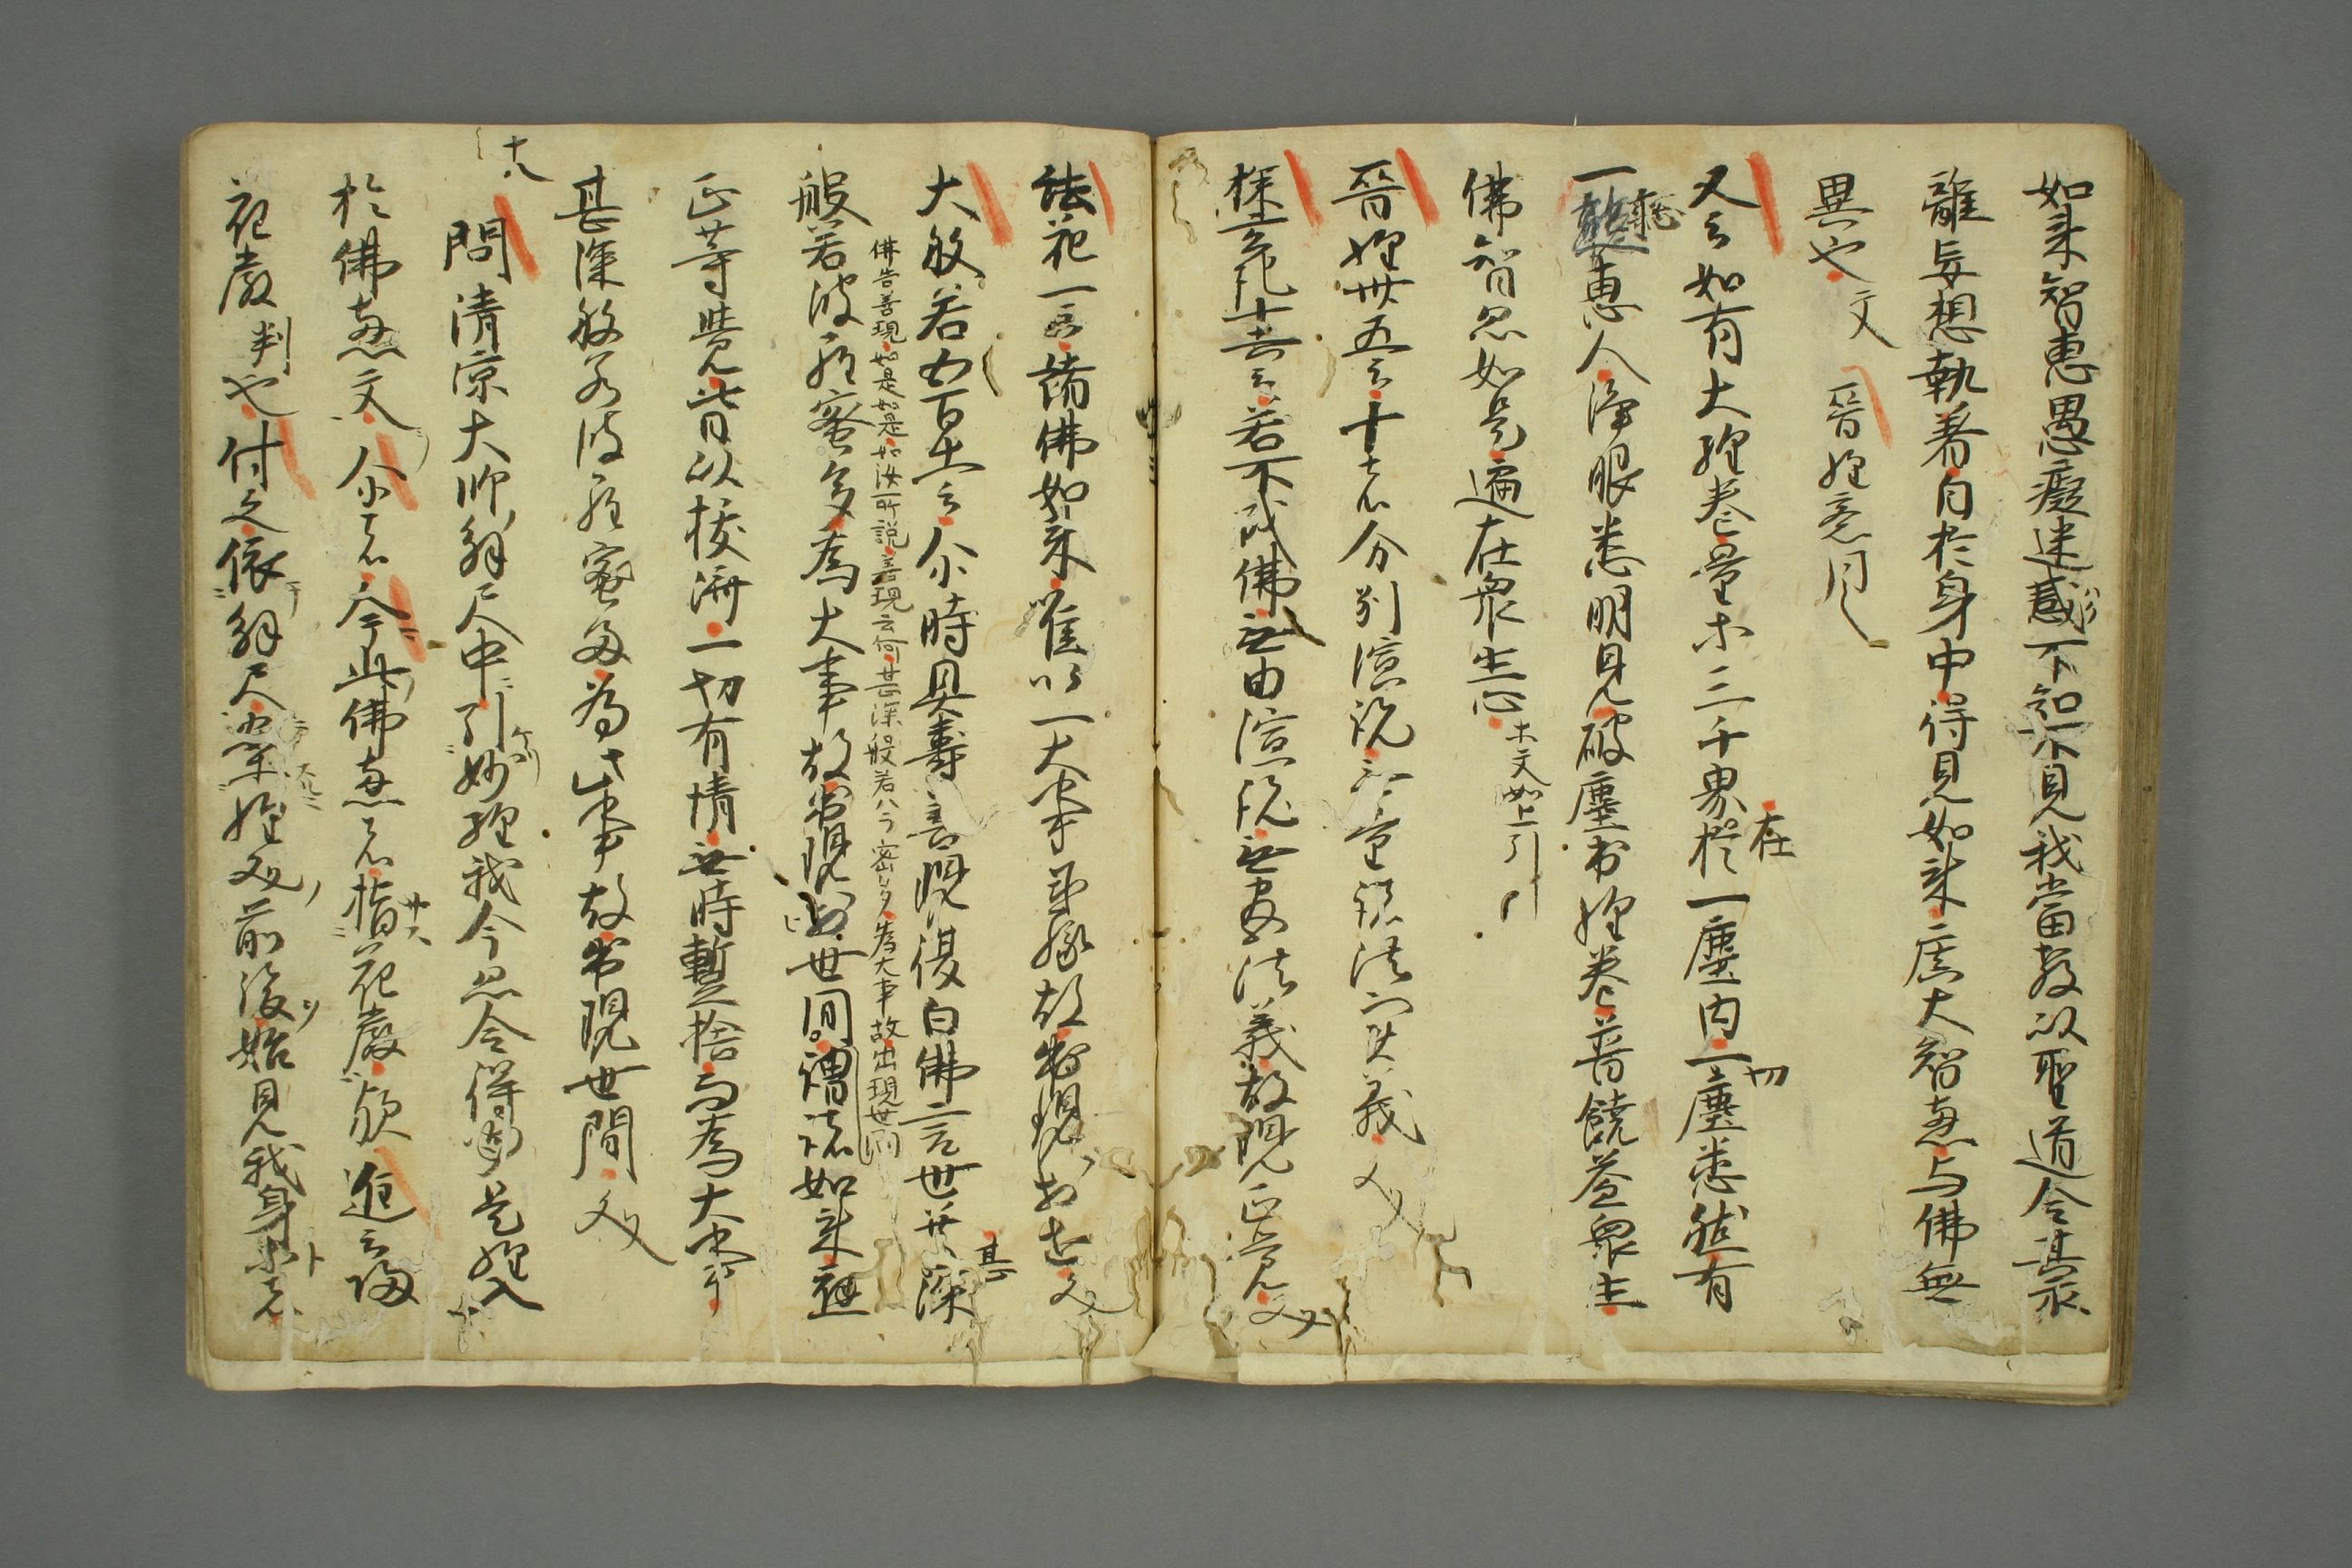 如来智恵愚癡迷惑不知不見我當教以聖道令其永
離妄想執着自於身中得見如来広大智恵与佛無
異也文 晋経意同之
又云如有大経巻量等三千界在於一塵内一切塵悉然有
一聡恵人浄眼悉明見破塵出経巻普饒益衆生
佛智忽如是遍在衆生心 等文如上引
晋経卅五云十者分別演説無量諸法門其義文
若不成佛無由演説無盡法義故現正覚文
法花一云諸佛如来唯以一大事因縁故出現於世文
大般若五百十一云尒時具壽善現復白佛言世尊甚深
般若波羅蜜多為大事故出現世間謂諸如来應
佛告善現如是如是如汝所説善現云何甚深般若ハラ密多為大事故出現世間
正等覚皆以抜済一切有情無時暫捨而為大事
甚深般若波羅蜜多為此事故出現世間文
問清涼大師解尺中引妙経我今忽令得聞是経入
於佛恵文尒者今此佛恵者指花厳歟進云
花厳判也付之依解尺案経文前後始見我身等者